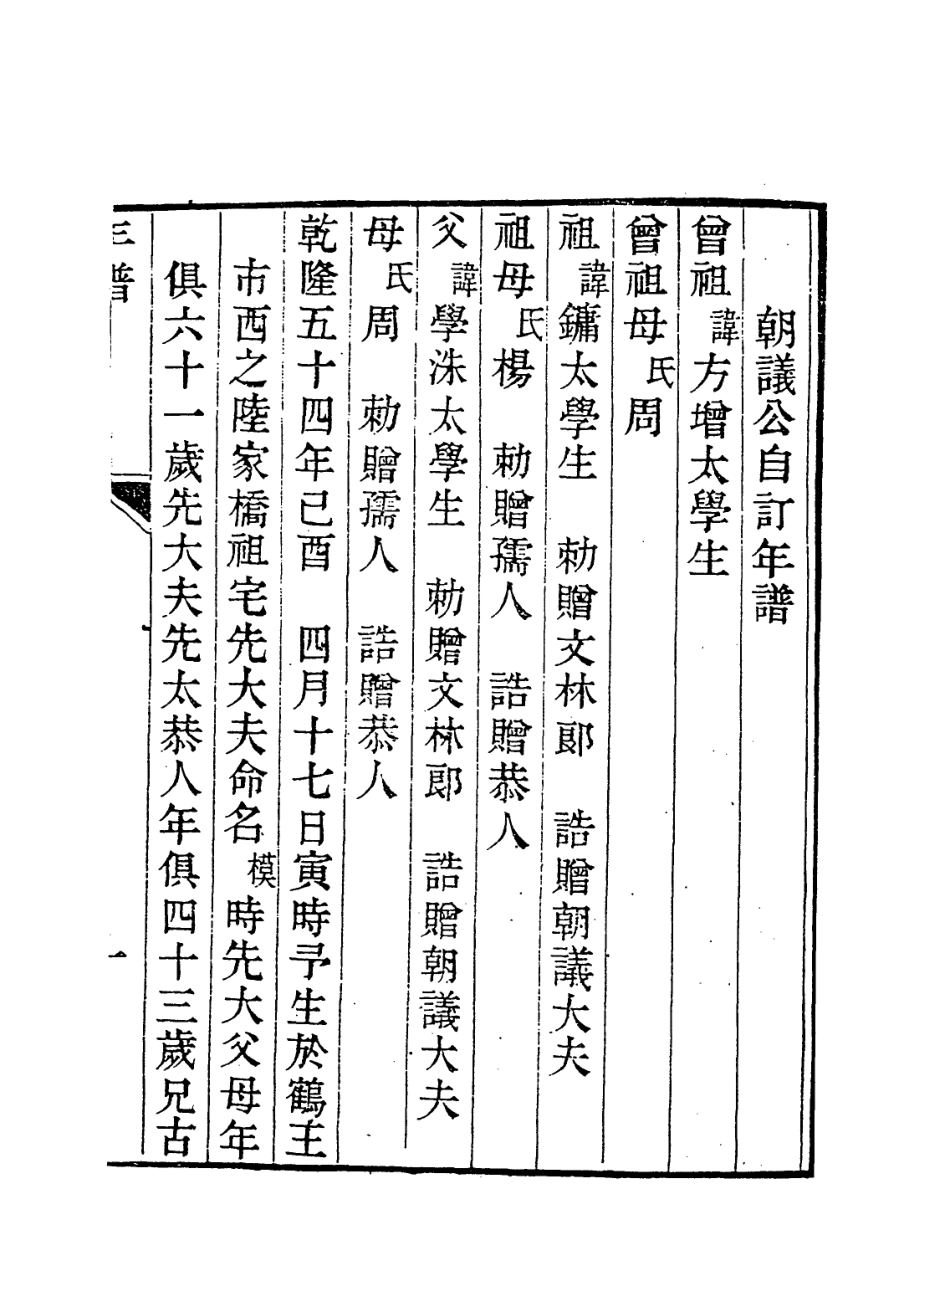 朝議公自訂年譜
曾祖諱方增太學生
曾祖母氏周
祖諱鏞太學生　勅贈文林郎　誥贈朝議大夫
祖母氏楊　勅贈孺人　誥贈恭人
父諱學洙太學生　勅贈文林郎　誥贈朝議大夫
母氏周　勅贈孺人　誥贈恭人
乾隆五十四年己酉　四月十七日寅時予生於鶴王
市西之陸家橋祖宅先大夫命名模時先大父母年
俱六十一歲先大夫先太恭人年俱四十三歲兄古
一